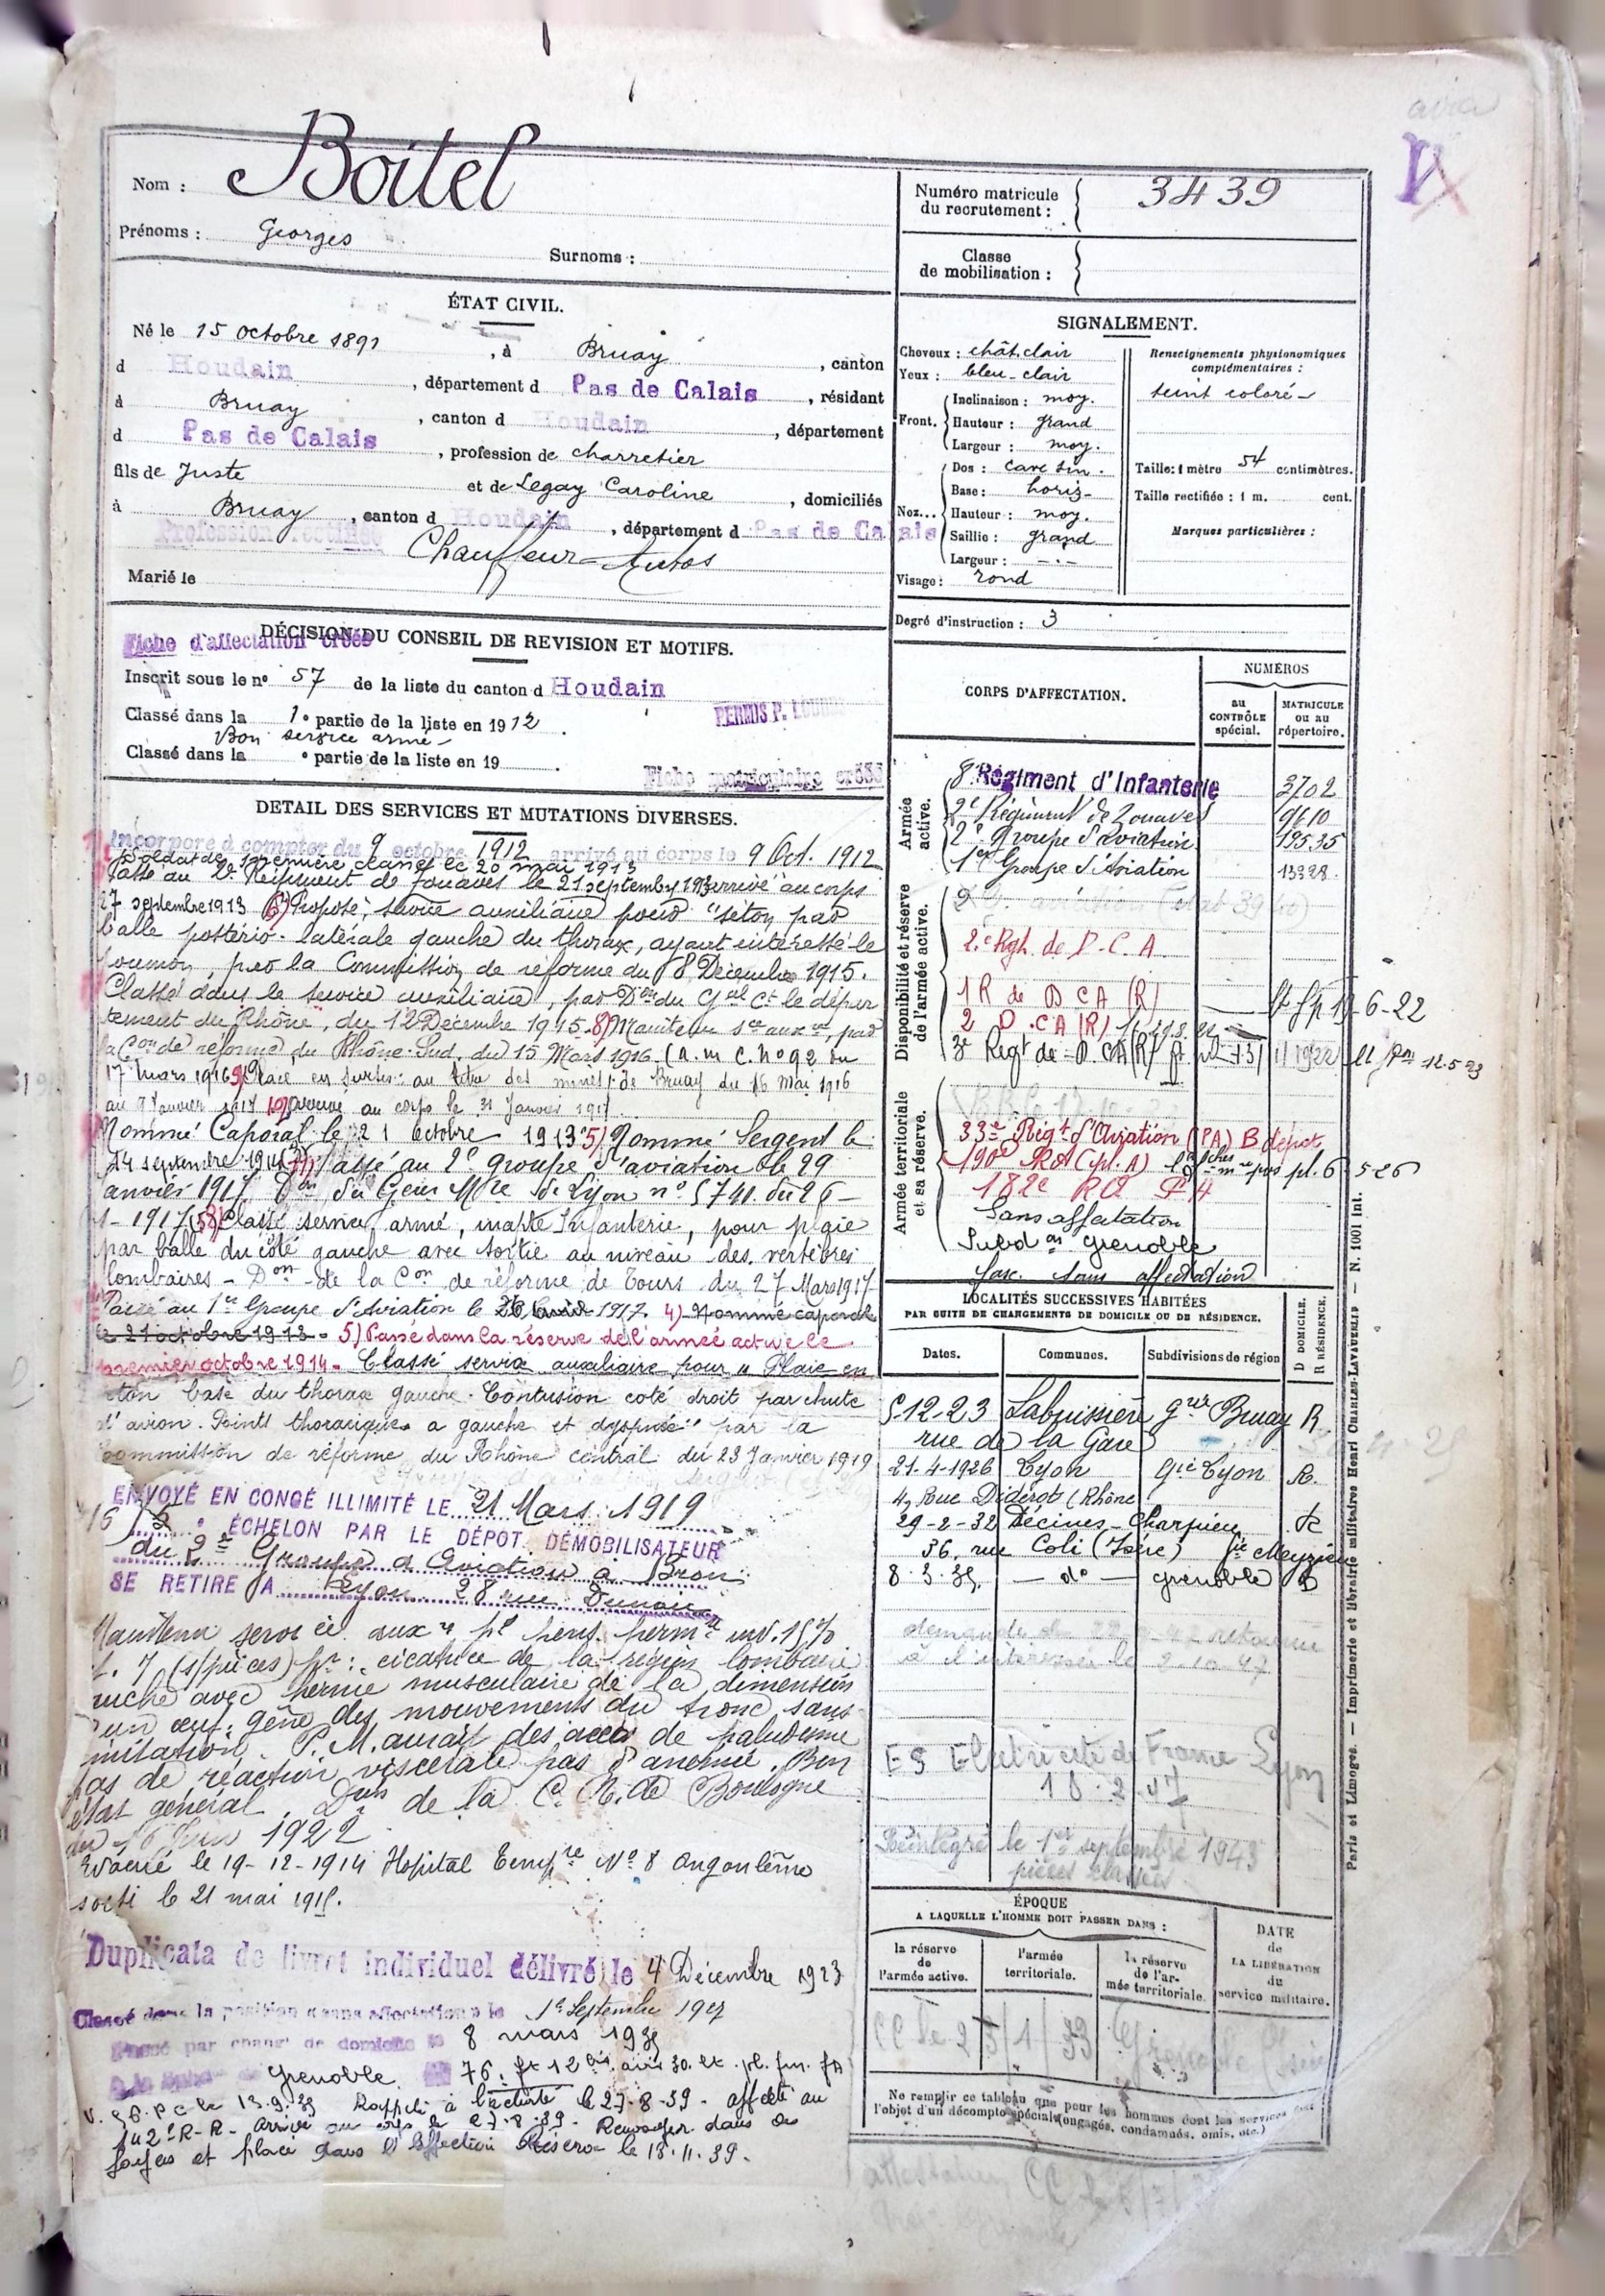 Nom : Boitel
Prénoms : Georges
Surnoms :
Numéro matricule
du recrutement : 3439
Classe
de mobilisation :
ÉTAT CIVIL.
Né le 15 octobre 1891, à Bruay, canton
d Houdain, département d Pas de Calais, résidant
à Bruay, canton d Houdain, département
d Pas de Calais, profession de charretier
fils de Juste et de Legay Caroline, domiciliés
à Bruay, canton d Houdain, département d Pas de Calais
Profession rectifiée Chauffeur-Autos
Marié le
SIGNALEMENT.
Cheveux : chât. clair
Yeux : bleu-clair
Front. Inclinaison : moy.
Hauteur : grand
Largeur : moy.
Nez... Dos : cave sin.
Base : horiz-
Hauteur : moy.
Saillie : grand
Largeur : -.-
Visage : rond
Renseignements physionomiques
complémentaires :
teint coloré-
Taille: 1 mètre 54 centimètres.
Taille rectifiée : 1 m. cent.
Marques particulières :
Degré d'instruction : 3
DÉCISION DU CONSEIL DE REVISION ET MOTIFS.
Fiche d'affectation créée
Inscrit sous le n° 57 de la liste du canton d Houdain
Classé dans la 1e partie de la liste en 1912.
Bon service armé-
Classé dans la e partie de la liste en 19 .
PERMIS P.
Fiche matriculaire créée
CORPS D'AFFECTATION.
NUMÉROS
au
CONTRÔLE
spécial.
MATRICULE
ou au
répertoire.
Armée
active.
8 Régiment d'Infanterie 3702
2e Régiment de Zouaves 9610
2e Groupe d'aviation 19535
1er Groupe d'Aviation 13328.
Disponibilité et réserve
de l'armée active.
2e Rgt. de D.C.A.
1 R de D C A (R) 19-6-22
2 D.CA (R)
3e Regt de D.CA (R) 12.5.23
Armée territoriale
et sa réserve.
33e Régt d'Aviation (PA) B dépôt
190e RA (pl. A) pl. 6 5 26
182e RA P 4
Sans affectation
Subd on Grenoble
sans affectation
DÉTAIL DES SERVICES ET MUTATIONS DIVERSES.
Incorporé à compter du 9 octobre 1912 arrivé au corps le 9 Oct. 1912
Soldat de première classe le 20 mai 1913
Passé au 2e Régiment de Zouaves le 21 septembre 1913 arrivé au corps
27 septembre 1913 6) Proposé, service auxiliaire pour "séton par
balle postério-latérale gauche du thorax, ayant intéressé le
poumon, par la Commission de réforme du 8 Décembre 1915.
Classé dans le service auxiliaire, par Don du Gal Ct le dépar
tement du Rhône, du 12 Décembre 1915. 8) Maintenu sce aux re, par
la Con de réforme du Rhône-Sud, du 15 Mars 1916. (a.m C. no 92 du
17 mars 1916 9) Placé en sursis: au titre des mines de Bruay du 16 mai 1916
au 9 Janvier 1917 10) arrivé au corps le 31 Janvier 1917
Nommé Caporal le 21 octobre 1913 5) Nommé Sergent le
24 septembre 1914 11) Passé au 2e groupe d'aviation le 29
janvier 1917. Don du Géné Mre de Lyon no 5741 du 26-
1-1917 Classé service armé, inapte Infanterie, pour plaie
par balle du côté gauche avec sortie au niveau des vertèbres
lombaires - Don de la Con de réforme de Tours du 27 Mars 1917
Passé au 1er Groupe d'Aviation le 1917. 4) Nommé caporal
le 21 octobre 1913 - 5) Passé dans la réserve de l'armée active le
premier octobre 1914. Classé service auxiliaire pour "Plaie en
séton base du thorax gauche. Contusion coté droit par chute
d'avion. Points thoraciques a gauche et dyspnée" par la
Commission de réforme du Rhône central du 23 Janvier 1919
ENVOYÉ EN CONGÉ ILLIMITÉ LE 21 Mars 1919
ÉCHELON PAR LE DÉPOT DÉMOBILISATEUR
du 2e Groupe d'Aviation à Bron
SE RETIRE A Lyon 28 rue Dunoir
Maintenu service aux re pl pens. permte inv. 15%
(s/pièces) pr : cicatrice de la région lombaire
gauche avec hernie musculaire de la dimension
d'un œuf. gêne des mouvements du tronc sans
limitation. P.M. aurait des accès de paludisme
pas de réaction viscérale pas d'anémie. Bon
état général. de la C. R. de Boulogne
du 16 Juin 1922
Evacué le 19-12-1914 Hopital Tempre No 8 Angoulême
sorti le 21 mai 1915.
Duplicata de livret individuel délivré le 4 Décembre 1923
Classé dans la position "sans affectation" le 1er Septembre 1927
Passé par chang' de domicile le 8 mars 1935
Grenoble 76.
Rappelé à l'activité le 27-8-39 - affecté au
142e R-R- Arrivé au corps le 27-8-39. Renvoyé dans ses
foyers et placé dans l'affection Réserve le 13.11.39.
LOCALITÉS SUCCESSIVES HABITÉES
PAR SUITE DE CHANGEMENTS DE DOMICILE OU DE RÉSIDENCE.
Dates. Communes. Subdivisions de région
D DOMICILE.
R RÉSIDENCE.
5-12-23 Labuissière gnie Bruay R
rue de la Gare
21-4-1926 Lyon gie Lyon R.
4, Rue Diderot (Rhône
29-2-32 Décines-Charpieu R
36, rue Coli (Isère) gie Meyzieu
8.3.35 - do - Grenoble D
demande du retournée
à l'intéressé le 2-10-47
ES Electricité de France Lyon
18.2.47
Réintégré le 1er septembre 1943
pièces classées
ÉPOQUE
A LAQUELLE L'HOMME DOIT PASSER DANS :
la réserve
de
l'armée active.
l'armée
territoriale.
la réserve
de l'ar-
mée territoriale.
DATE
de
LA LIBÉRATION
du
service militaire.
CC le 25/1/39 Grenoble
Ne remplir ce tableau que pour les hommes dont les services font
l'objet d'un décompte spécial (engagés, condamnés, omis, etc.)
Paris et Limoges. — Imprimerie et librairie militaires Henri CHARLES-LAVAUZELLE — N. 1001 int.